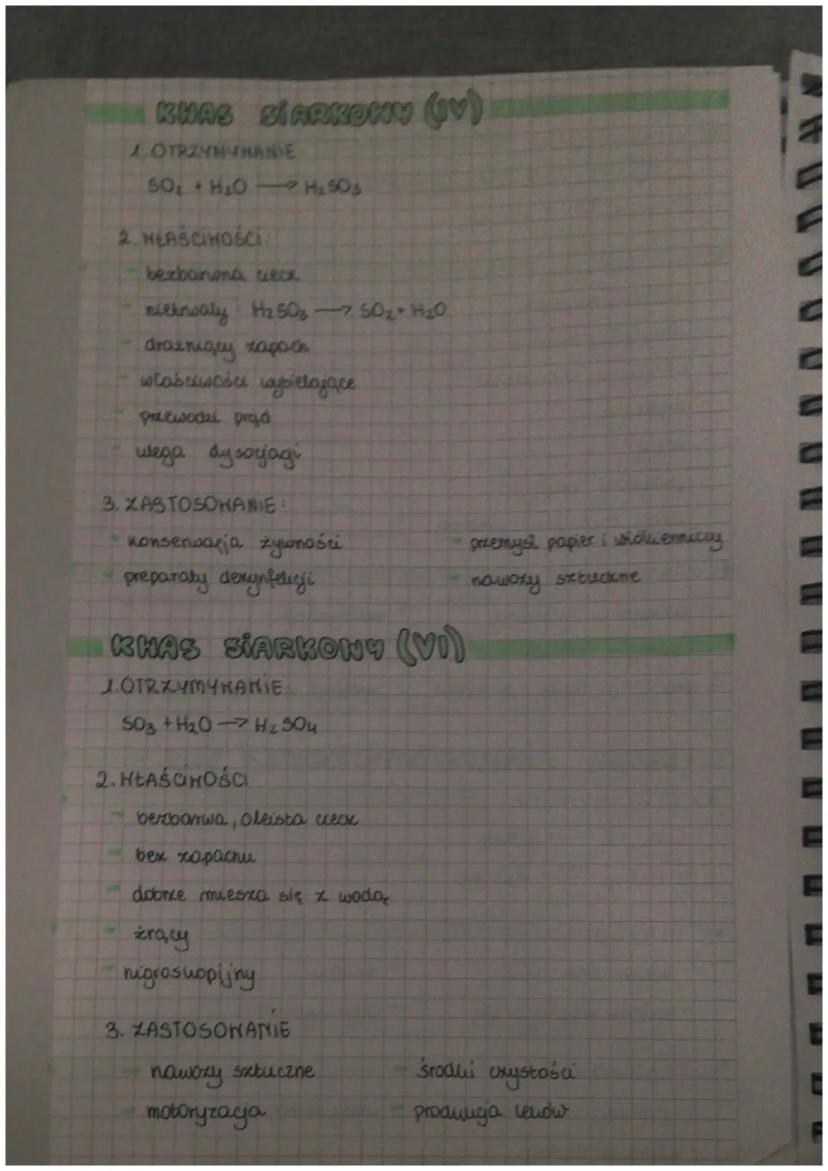 KWAS SIARKOWY (IV)
1. OTRZYMYWANIE
SO₂ + H₂O → H₂SO₃
2. WŁAŚCIWOŚCI:
- bezbarwna ciecz
- nietrwały: H₂SO₃ → SO₂ + H₂O
- drażniący zapach
- właściwości wybielające
- przewodzi prąd
- ulega dysocjacji
3. ZASTOSOWANIE:
- konserwacja żywności
- przemysł papier i włókienniczy
- preparaty dezynfekcji
- nawozy sztuczne
KWAS SIARKOWY (VI)
1. OTRZYMYWANIE
SO₃ + H₂O → H₂SO₄
2. WŁAŚCIWOŚCI
- bezbarwna, oleista ciecz
- bez zapachu
- dobrze miesza się z wodą
- żrący
- higroskopijny
3. ZASTOSOWANIE
- nawozy sztuczne
- środki czystości
- motoryzacja
- produkcja leków